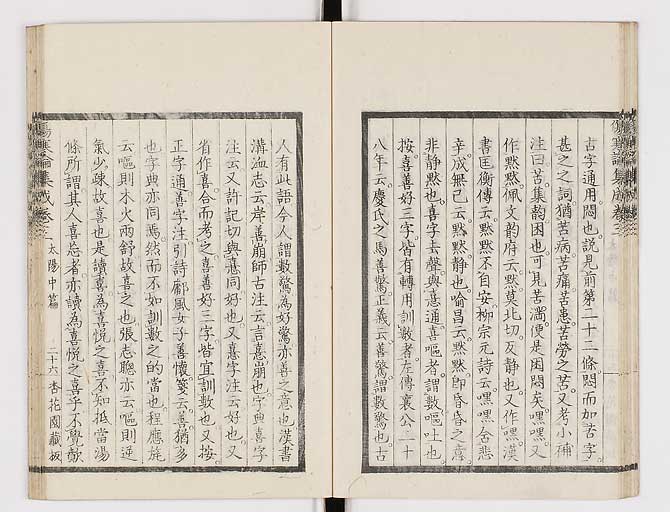 古字通用悶也說見前第二十三條悶而加苦字
甚之之詞猶苦病苦痛苦患苦勞之苦又考小補
注曰苦集韵困也可見苦滿便是困悶矣嘿嘿又
作默默佩文韵府云默莫北切反静也又作嘿漢
書匡衡傳云默默不自安柳宗元詩云嘿嘿含悲
辛成無己云默默静也喻昌云默默即昏昏之意
非静默也喜字去聲與意通喜嘔者謂數嘔吐也
按喜善好三字皆有轉用訓數者左傳襄公二十
八年云慶氏之馬善驚正義云善驚謂數驚也古
人有此語今人謂數驚為好驚亦善之意也漢書
溝洫志云岸善崩師古注云言憙崩也字典喜字
注云又許記切與憙同好也又憙字注云好也又
省作喜合而考之喜善好三字皆宜訓數也又按
正字通善字注引詩鄘風女子善懷箋云善猶多
也字典亦同焉然而不如訓數之的當也程應旄
云嘔則木火兩舒故喜之也張志聰亦云嘔則逆
氣少疎故喜也是讀喜為喜悦之喜不知抵當湯
條所謂其人喜忘者亦讀為喜悦之喜乎不覺欷
傷寒論集成卷三
太陽中篇
二十六
杏花園藏板